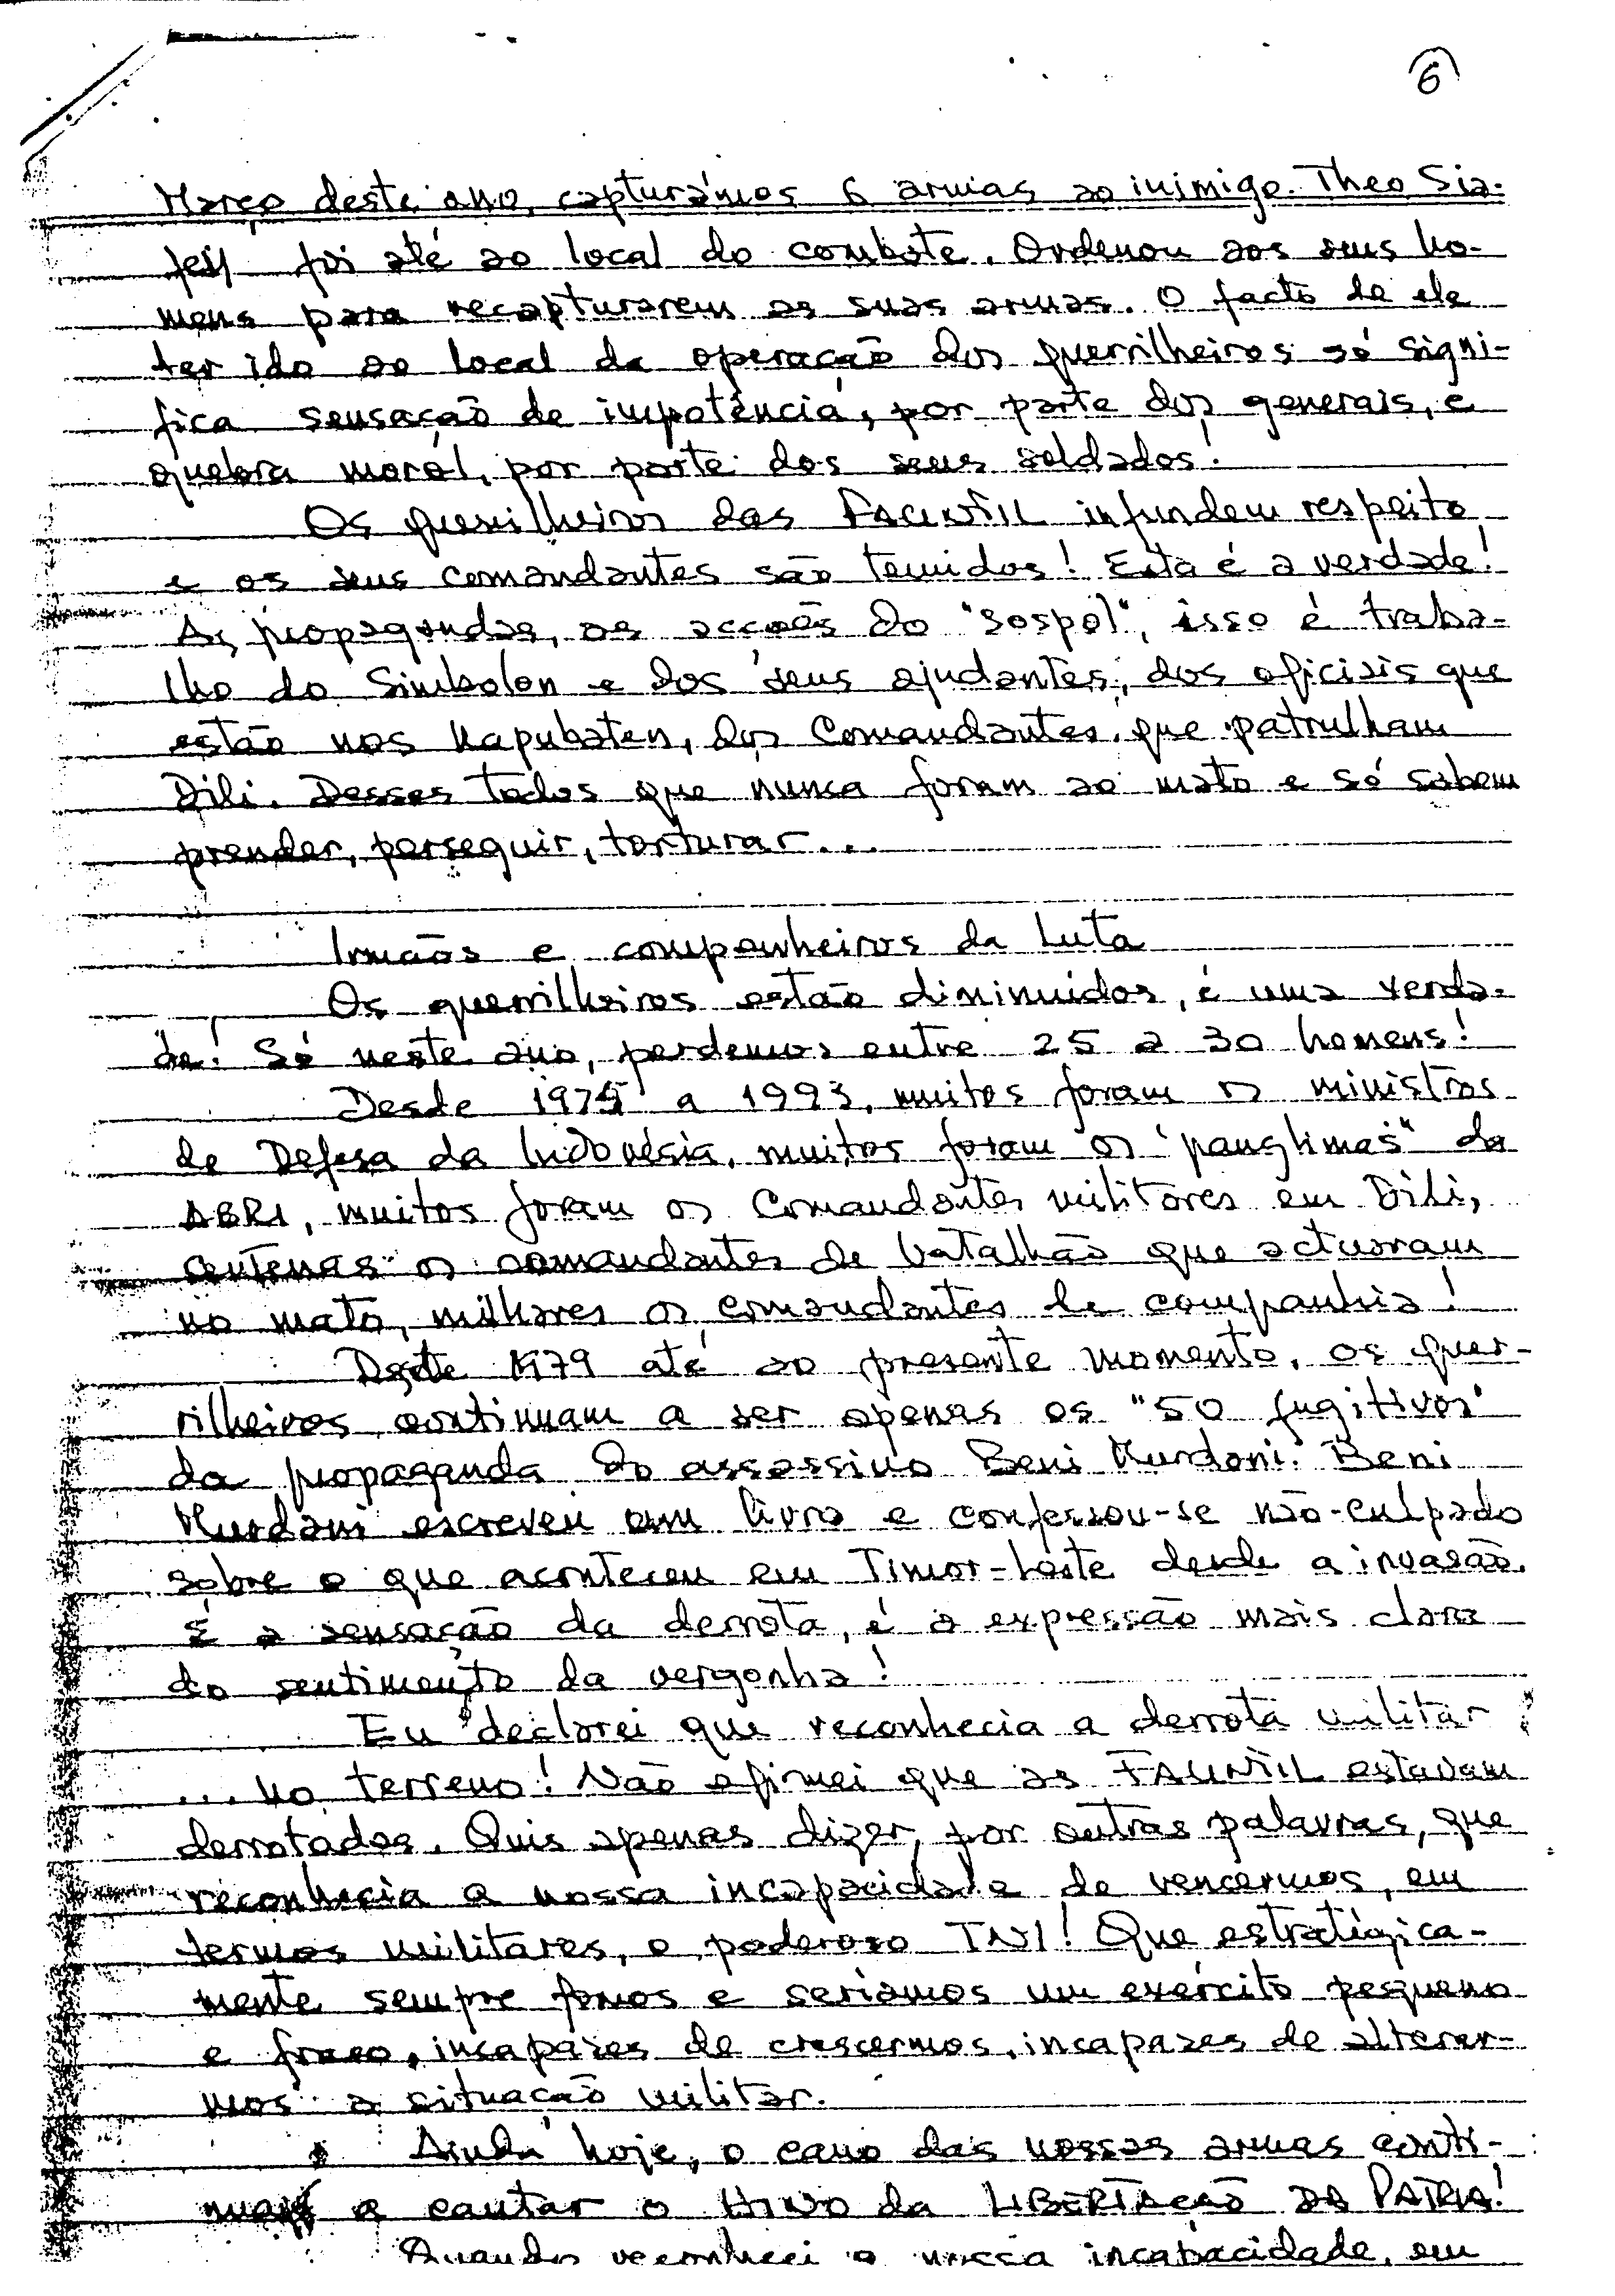 6
Março deste ano, capturámos 6 armas ao inimigo. Theo Sia-
feij foi até ao local do combate. Ordenou aos seus ho-
mens para recapturarem as suas armas. O facto de ele
ter ido ao local da operação dos guerrilheiros só signi-
fica sensação de impotência, por parte dos generais, e
quebra moral, por parte dos seus soldados!
Os guerrilheiros das FALINTIL infundem respeito
e os seus comandantes são temidos! Esta é a verdade!
As propagandas, as acções do "sospol", isso é traba-
lho do Simbolon e dos seus ajudantes, dos oficiais que
estão nos Kapubaten, dos Comandantes que patrulham
Dili. Desses todos que nunca foram ao mato e só sabem
prender, perseguir, torturar...
Irmãos e companheiros da Luta
Os guerrilheiros estão diminuídos, é uma verda-
de! Só neste ano, perdemos entre 25 a 30 homens!
Desde 1975 a 1993, muitos foram os ministros
de Defesa da Indonésia, muitos foram os "panglimas" da
ABRI, muitos foram os Comandantes militares em Dili,
centenas os comandantes de batalhão que actuaram
no mato, milhares os comandantes de companhia!
Desde 1979 até ao presente momento, os guer-
rilheiros continuam a ser apenas os "50 fugitivos"
da propaganda do assassino Beni Murdani. Beni
Murdani escreveu um livro e confessou-se não-culpado
sobre o que aconteceu em Timor-Leste desde a invasão.
É a sensação da derrota, é a expressão mais clara
do sentimento da vergonha!
Eu declarei que reconhecia a derrota militar
... no terreno! Não afirmei que as FALINTIL estavam
derrotadas. Quis apenas dizer, por outras palavras, que
reconhecia a nossa incapacidade de vencermos, em
termos militares, o poderoso TNI! Que estratègica-
mente sempre fomos e seríamos um exército pequeno
e fraco, incapazes de crescermos, incapazes de alterar-
mos a situação militar.
Ainda hoje, o cano das nossas armas conti-
nua a cantar o HINO da LIBERTAÇÃO DA PÁTRIA!
Quando reconheci a nossa incapacidade, em